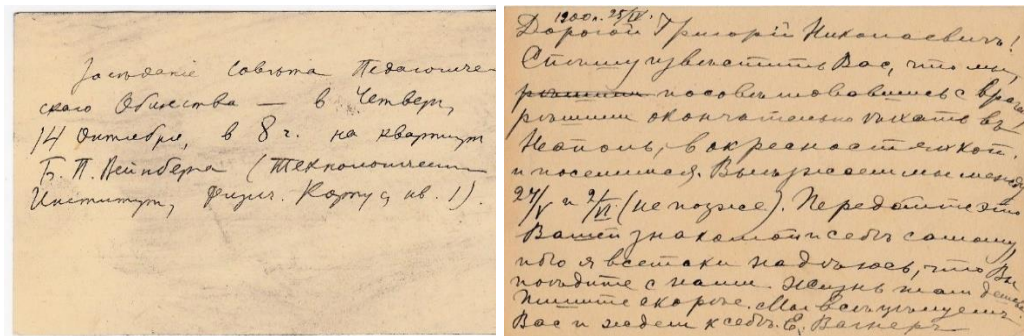 Засѣданіе Совѣта Педагогиче-
скаго Общества — в Четверг,
14 Октября, в 8 г. на квартире
Б. П. Вейнберга (Технологическ
Институт, Физич. Корпус, кв. 1).
1900 г. 25/IV.
Дорогой Григорій Николаевичъ!
Спѣшу извѣстить Васъ, что мы,
рѣшили посовѣтовавшись с врача
рѣшили окончательно ѣхать въ
Неаполь, в окресностях кот.
и поселимся. Выѣзжаем мы между
27/V и 2/VI (не позже). Передайте это
Вашей знакомой и себѣ самому,
ибо я всетаки надѣюсь, что Вы
поѣдите с нами. Жизнь там
Пишите скорѣе. Мы всѣ цѣлуем
Вас и ждем к себѣ. Е. Вагнеръ